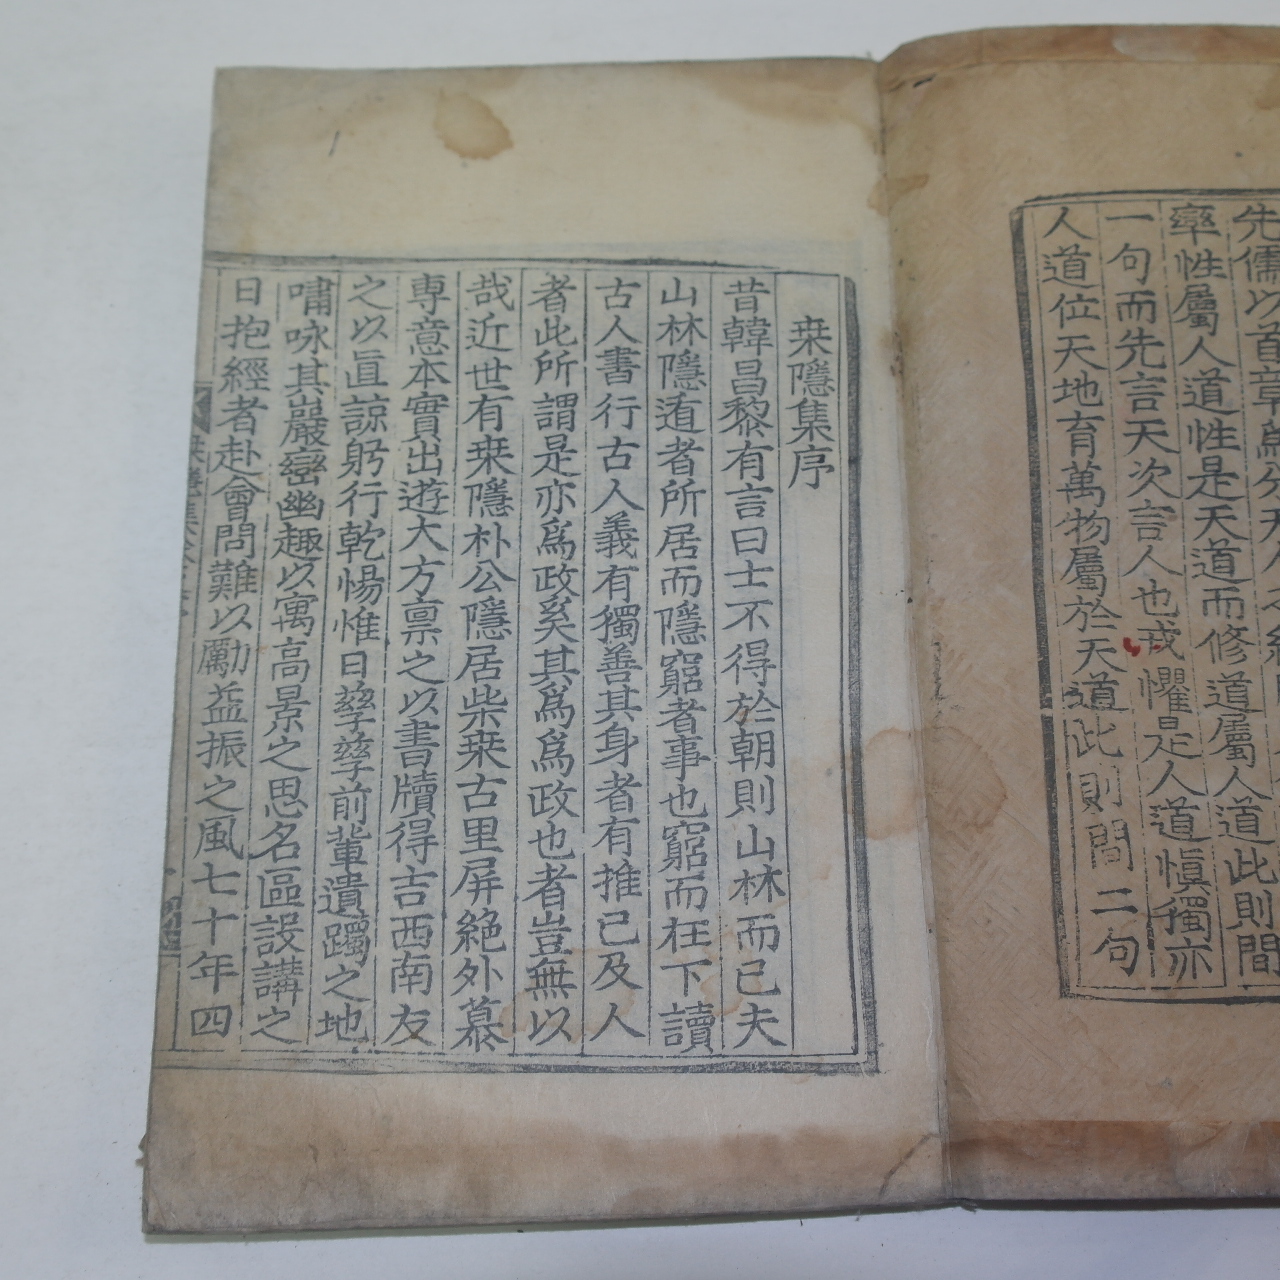 先儒以首章爲分天人
率性屬人道性是天道而修道屬人道此則間
一句而先言天次言人也戒懼是人道愼獨亦
人道位天地育萬物屬於天道此則間二句
栞隱集序
昔韓昌黎有言曰士不得於朝則山林而已夫
山林隱遁者所居而隱窮者事也窮而在下讀
古人書行古人義有獨善其身者有推己及人
者此所謂是亦爲政奚其爲爲政也者豈無以
哉近世有栞隱朴公隱居柴栞古里屏絶外慕
專意本實出遊大方禀之以書牘得吉西南友
之以直諒躬行乾惕惟日孶孶前輩遺躅之地
嘯咏其巖巒幽趣以寓高景之思名區設講之
日抱經者赴會問難以勵益振之風七十年四